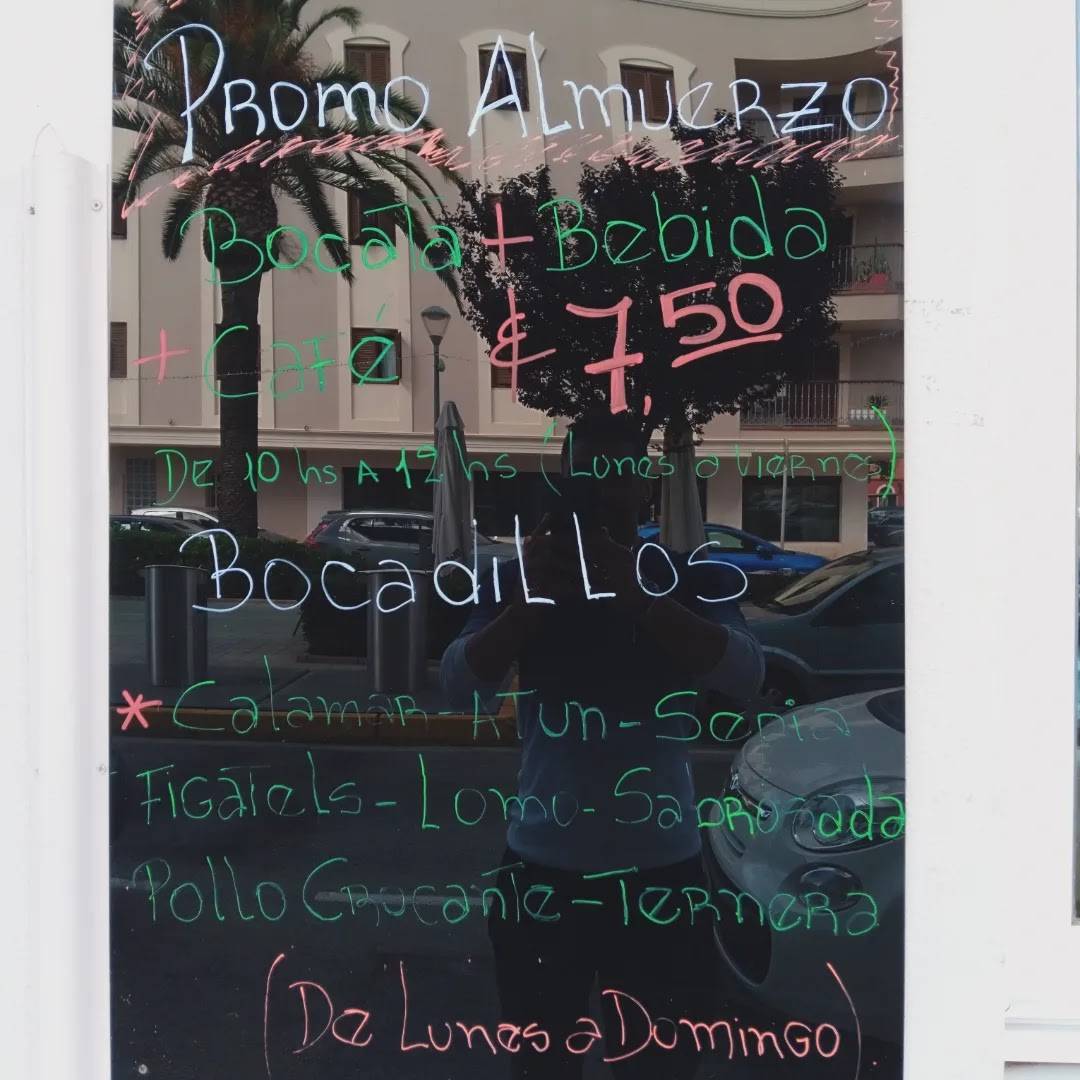 Promo Almuerzo
Bocata + Bebida
+ Café € 7,50
De 10 hs A 12 hs (Lunes a Viernes)
Bocadillos
* Calamar - Atun - Sepia
Figatels - Lomo - Sabrosada
Pollo Crocante - Ternera
(De Lunes a Domingo).